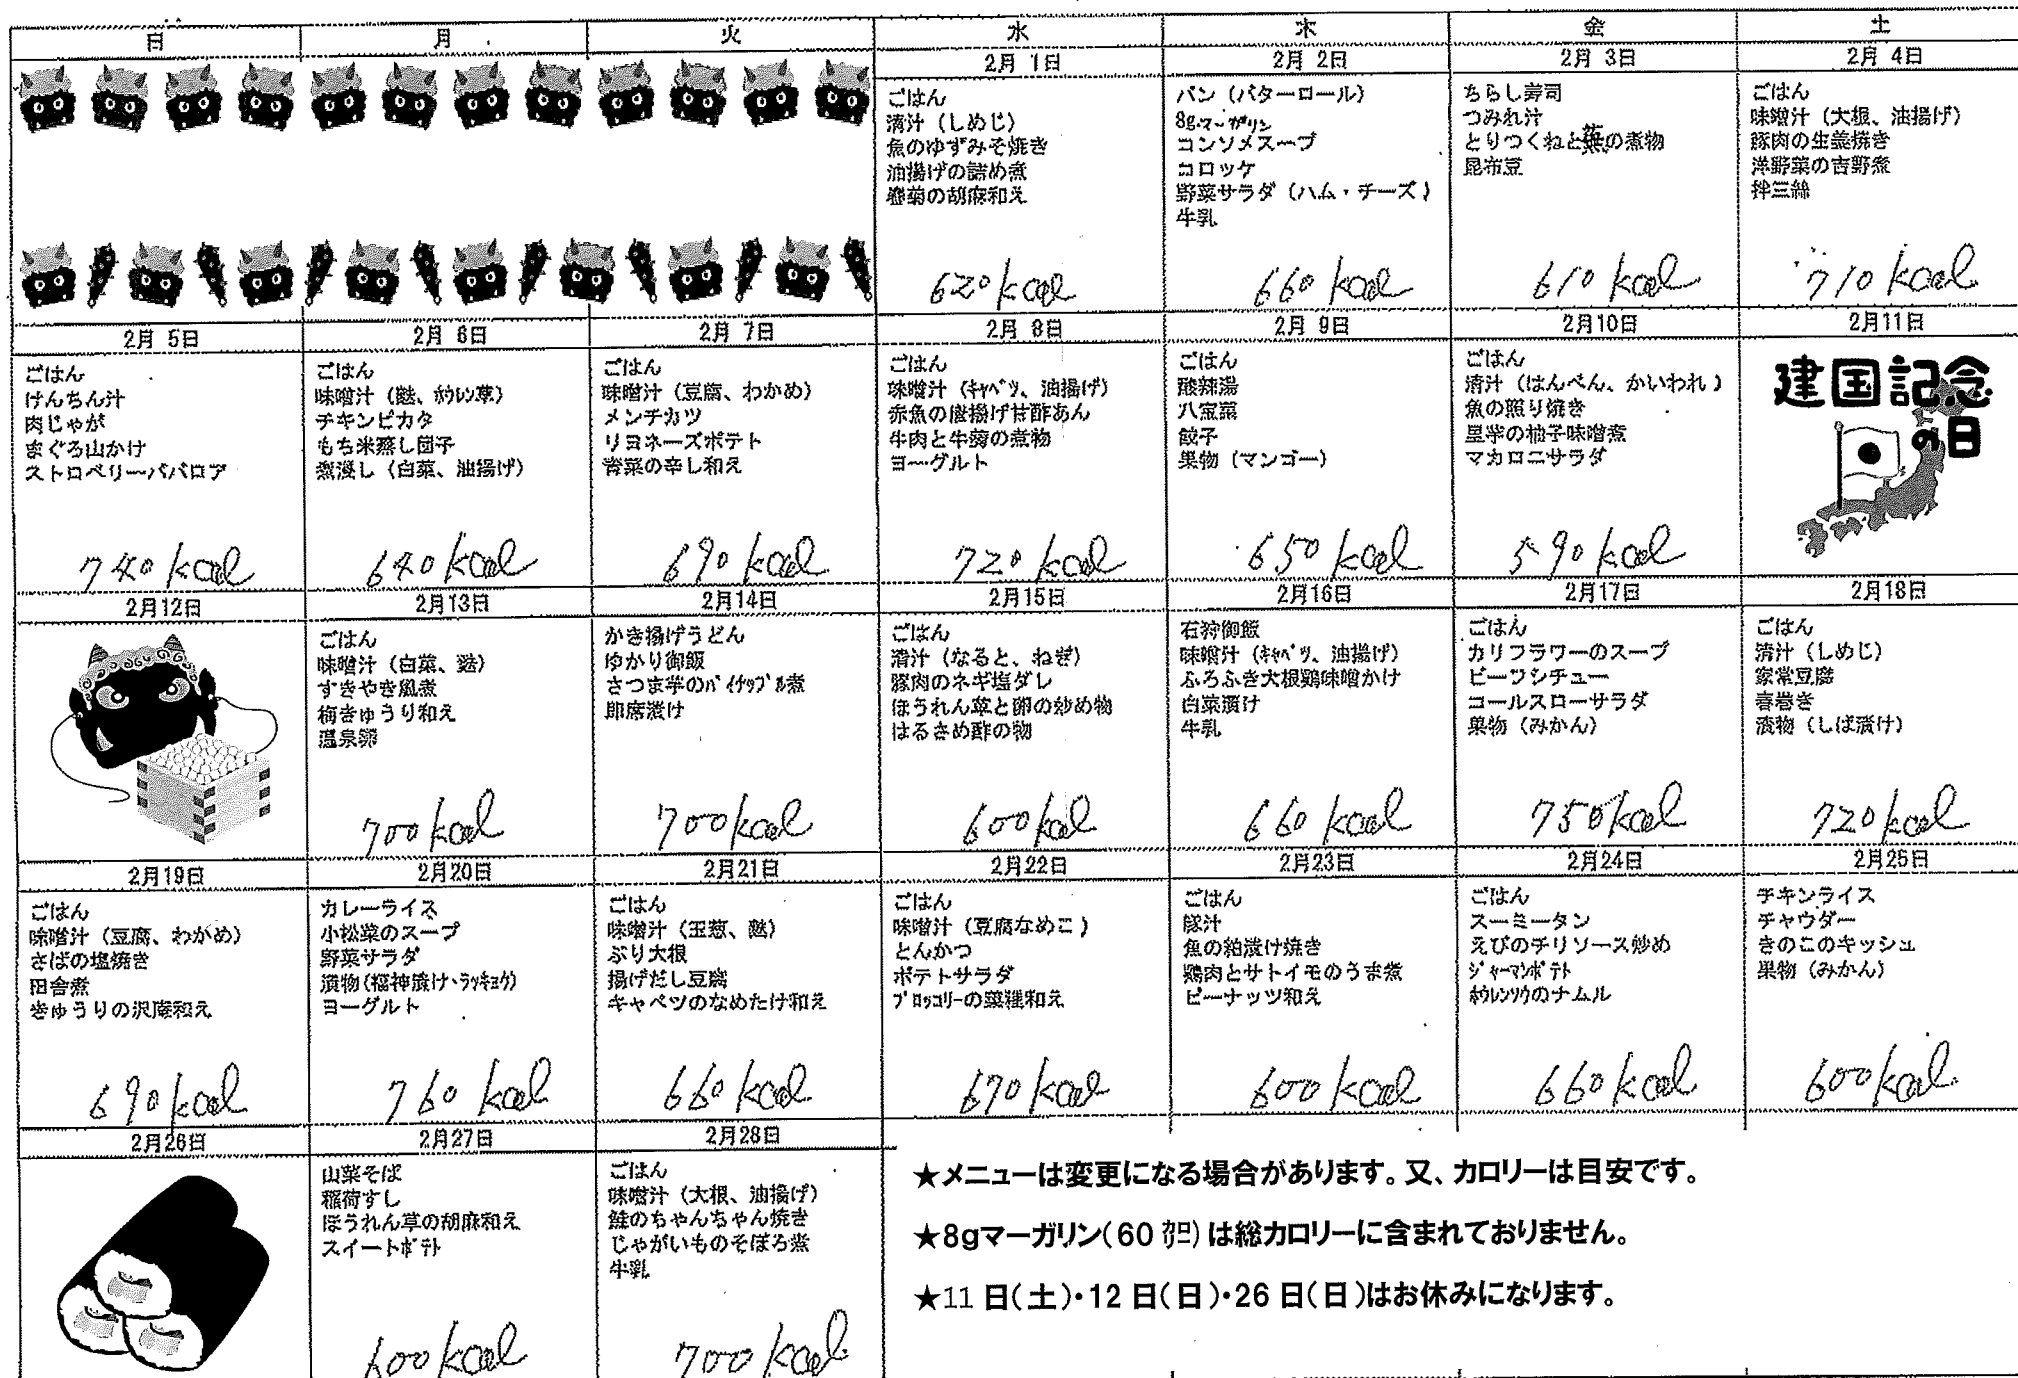 日 月 火 水 木 金 土
2月 1日
ごはん
清汁（しめじ）
魚のゆずみそ焼き
油揚げの詰め煮
春菊の胡麻和え
620kcal
2月 2日
パン（バターロール）
8gマーガリン
コンソメスープ
コロッケ
野菜サラダ（ハム・チーズ）
牛乳
660kcal
2月 3日
ちらし寿司
つみれ汁
とりつくねと の煮物
昆布豆
610kcal
2月 4日
ごはん
味噌汁（大根、油揚げ）
豚肉の生姜焼き
洋野菜の吉野煮
拌三絲
710kcal
2月 5日
ごはん
けんちん汁
肉じゃが
まぐろ山かけ
ストロベリーババロア
740kcal
2月 6日
ごはん
味噌汁（麩、ﾎｳﾚﾝ草）
チキンピカタ
もち米蒸し団子
煮浸し（白菜、油揚げ）
640kcal
2月 7日
ごはん
味噌汁（豆腐、わかめ）
メンチカツ
リヨネーズポテト
青菜の辛し和え
690kcal
2月 8日
ごはん
味噌汁（ｷｬﾍﾞﾂ、油揚げ）
赤魚の唐揚げ甘酢あん
牛肉と牛蒡の煮物
ヨーグルト
720kcal
2月 9日
ごはん
酸辣湯
八宝菜
餃子
果物（マンゴー）
650kcal
2月10日
ごはん
清汁（はんぺん、かいわれ）
魚の照り焼き
里芋の柚子味噌煮
マカロニサラダ
590kcal
2月11日
建国記念
の日
2月12日
2月13日
ごはん
味噌汁（白菜、麩）
すきやき風煮
梅きゅうり和え
温泉卵
700kcal
2月14日
かき揚げうどん
ゆかり御飯
さつま芋のﾊﾟｲﾅｯﾌﾟﾙ煮
即席漬け
700kcal
2月15日
ごはん
清汁（なると、ねぎ）
豚肉のネギ塩ダレ
ほうれん草と卵の炒め物
はるさめ酢の物
600kcal
2月16日
石狩御飯
味噌汁（ｷｬﾍﾞﾂ、油揚げ）
ふろふき大根鶏味噌かけ
白菜漬け
牛乳
660kcal
2月17日
ごはん
カリフラワーのスープ
ビーフシチュー
コールスローサラダ
果物（みかん）
750kcal
2月18日
ごはん
清汁（しめじ）
家常豆腐
春巻き
漬物（しば漬け）
720kcal
2月19日
ごはん
味噌汁（豆腐、わかめ）
さばの塩焼き
田舎煮
きゅうりの沢庵和え
690kcal
2月20日
カレーライス
小松菜のスープ
野菜サラダ
漬物（福神漬け・ﾗｯｷｮｳ）
ヨーグルト
760kcal
2月21日
ごはん
味噌汁（玉葱、麩）
ぶり大根
揚げだし豆腐
キャベツのなめたけ和え
660kcal
2月22日
ごはん
味噌汁（豆腐なめこ）
とんかつ
ポテトサラダ
ﾌﾞﾛｯｺﾘｰの菜種和え
670kcal
2月23日
ごはん
豚汁
魚の粕漬け焼き
鶏肉とサトイモのうま煮
ピーナッツ和え
600kcal
2月24日
ごはん
スーミータン
えびのチリソース炒め
ｼﾞｬｰﾏﾝﾎﾟﾃﾄ
ﾎｳﾚﾝｿｳのナムル
660kcal
2月25日
チキンライス
チャウダー
きのこのキッシュ
果物（みかん）
600kcal
2月26日
2月27日
山菜そば
稲荷すし
ほうれん草の胡麻和え
スイートﾎﾟﾃﾄ
600kcal
2月28日
ごはん
味噌汁（大根、油揚げ）
鮭のちゃんちゃん焼き
じゃがいものそぼろ煮
牛乳
700kcal
★メニューは変更になる場合があります。又、カロリーは目安です。
★8gマーガリン（60㌍）は総カロリーに含まれておりません。
★11日（土）・12日（日）・26日（日）はお休みになります。